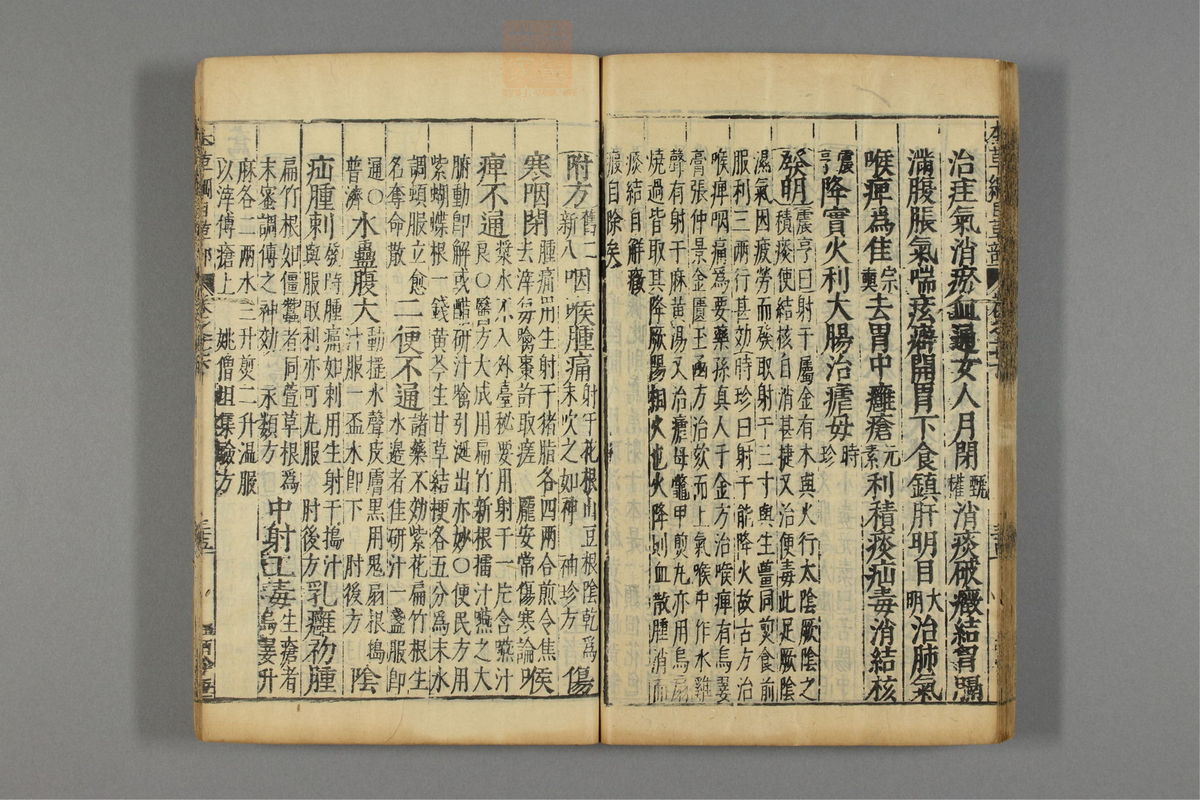 本草綱目草部 卷之十七
治疰氣消瘀血通女人月閉甄權消痰破癥結胸膈
滿腹脹氣喘痃癖開胃下食鎮肝明目大明治肺氣
喉痺爲佳宗奭去胃中癰瘡元素利積痰疝毒消結核
震亨降實火利大腸治瘧母時珍
發明震亨曰射干屬金有木與火行太陰厥陰之
積痰使結核自消甚捷又治便毒此足厥陰
濕氣因疲勞而發取射干三寸與生薑同煎食前
服利三兩行甚効時珍曰射干能降火故古方治
喉痺咽痛爲要藥孫真人千金方治喉痺有烏翣
膏張仲景金匱玉函方治欬而上氣喉中作水雞
聲有射干麻黃湯又治瘧母鼈甲煎丸亦用烏扇
燒過皆取其降厥陰相火也火降則血散腫消而
痰結自解癥
瘕自除矣
附方舊二新八咽喉腫痛射干花根山豆根陰乾爲末吹之如神 袖珍方傷
寒咽閉腫痛用生射干猪脂各四兩合煎令焦去滓每噙棗許取瘥 龐安常傷寒論喉
痺不通漿水不入外臺秘要用射干一片含嚥汁良〇醫方大成用扁竹新根擂汁嚥之大
腑動即解或醋研汁噙引涎出亦妙〇便民方用
紫蝴蝶根一錢黃芩生甘草桔梗各五分爲末水
調頓服立愈名奪命散二便不通諸藥不効紫花扁竹根生水邊者佳研汁一盞服即
通〇普濟水蠱腹大動搖水聲皮膚黑用鬼扇根搗汁服一盃水卽下 肘後方陰
疝腫刺發時腫痛如刺用生射干搗汁與服取利亦可丸服 肘後方乳癰初腫
扁竹根如僵蠶者同萱草根爲末蜜調傅之神効 永類方中射工毒生瘡者烏翣升
麻各二兩水三升煑二升温服
以滓傅瘡上 姚僧坦集驗方
本草綱目草部 卷之十七